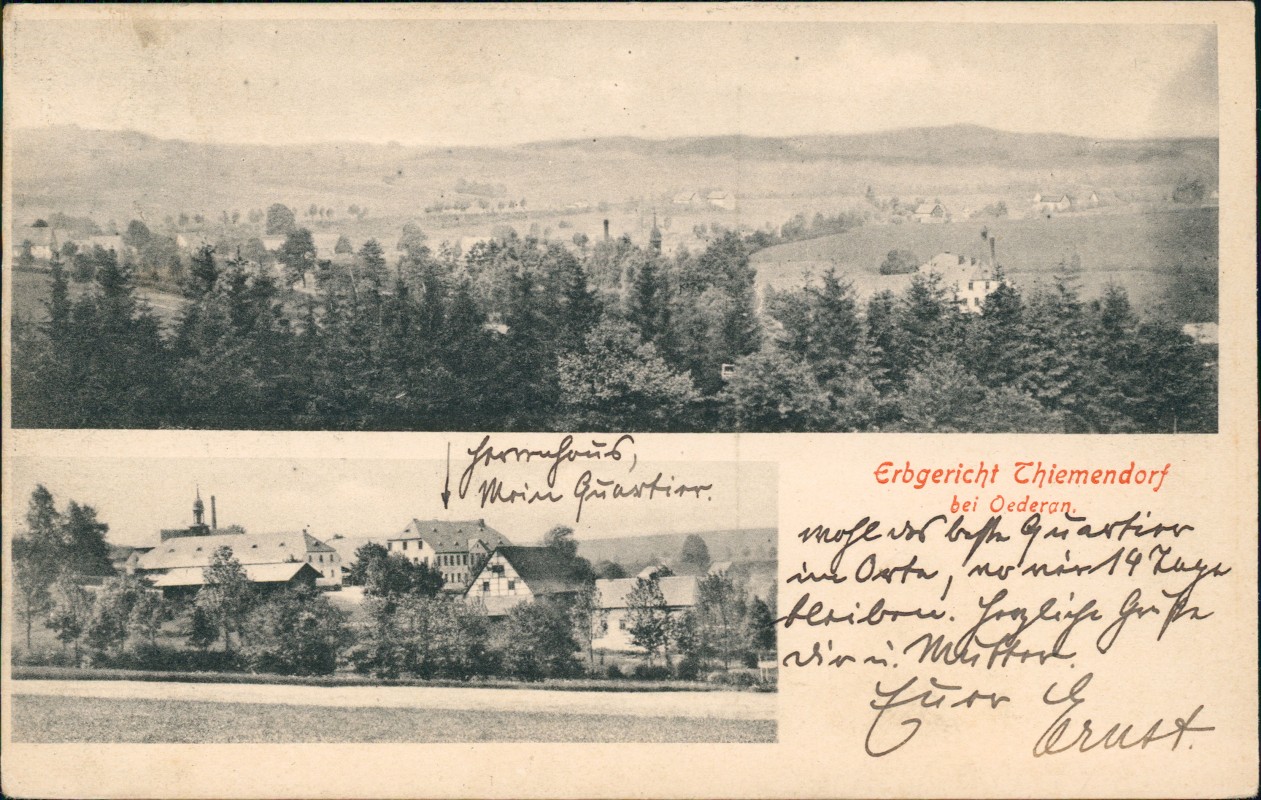 Herrenhaus,
Mein Quartier.
Erbgericht Thiemendorf
bei Oederan.
wohl das beste Quartier
im Orte, wo wir 14 Tage
bleiben. Herzliche Grüße
dir u. Mutter.
Euer
Ernst.